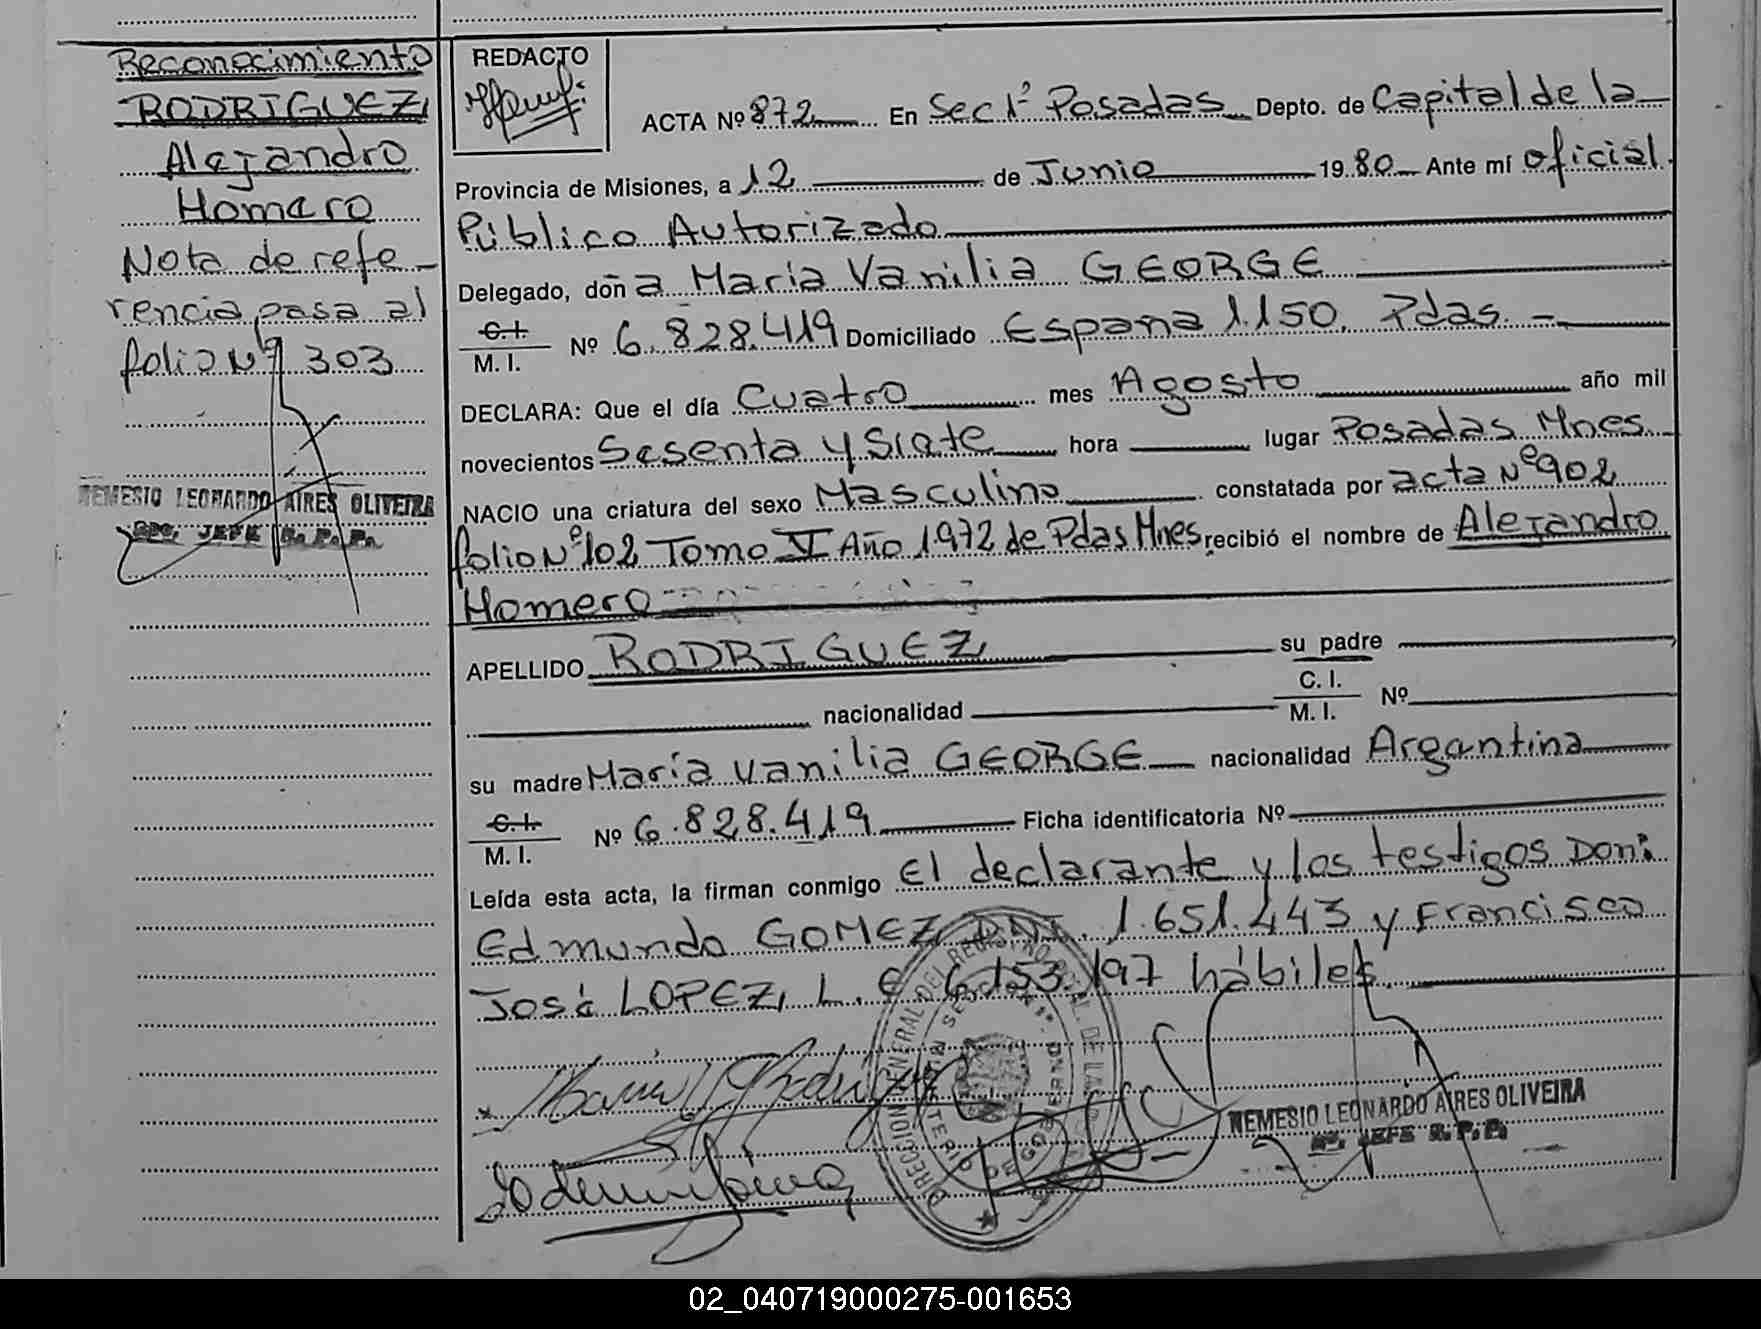 Reconocimiento
RODRIGUEZ,
Alejandro
Homero
Nota de refe-
rencia pasa al
folio Nº 303
NEMESIO LEONARDO AIRES OLIVEIRA
JEFE R. P. P.
REDACTO
ACTA Nº 872 En Secc 1ª Posadas Depto. de Capital de la
Provincia de Misiones, a 12 de Junio 1980 Ante mí oficial
Público Autorizado
Delegado, doña María Vanilia GEORGE
C.I.
M. I. Nº 6.828.419 Domiciliado España 1.150. Pdas. -
DECLARA: Que el día Cuatro mes Agosto año mil
novecientos Sesenta y Siete hora lugar Posadas Mnes.
NACIO una criatura del sexo Masculino constatada por acta Nº 902
folio Nº 102 Tomo VI Año 1972 de Pdas Mnes recibió el nombre de Alejandro
Homero
APELLIDO RODRIGUEZ su padre
nacionalidad C. I.
M. I. Nº
su madre María Vanilia GEORGE nacionalidad Argentina
C.I.
M. I. Nº 6.828.419 Ficha identificatoria Nº
Leída esta acta, la firman conmigo El declarante y los testigos Don:
Edmundo GOMEZ DNI. 1.651.443 y Francisco
José LOPEZ, L. E. 6.153.197 hábiles.
DIRECCION GENERAL DEL REGISTRO DE LAS
MINISTERIO DE GOBIERNO
NEMESIO LEONARDO AIRES OLIVEIRA
JEFE R. P. P.
02_040719000275-001653